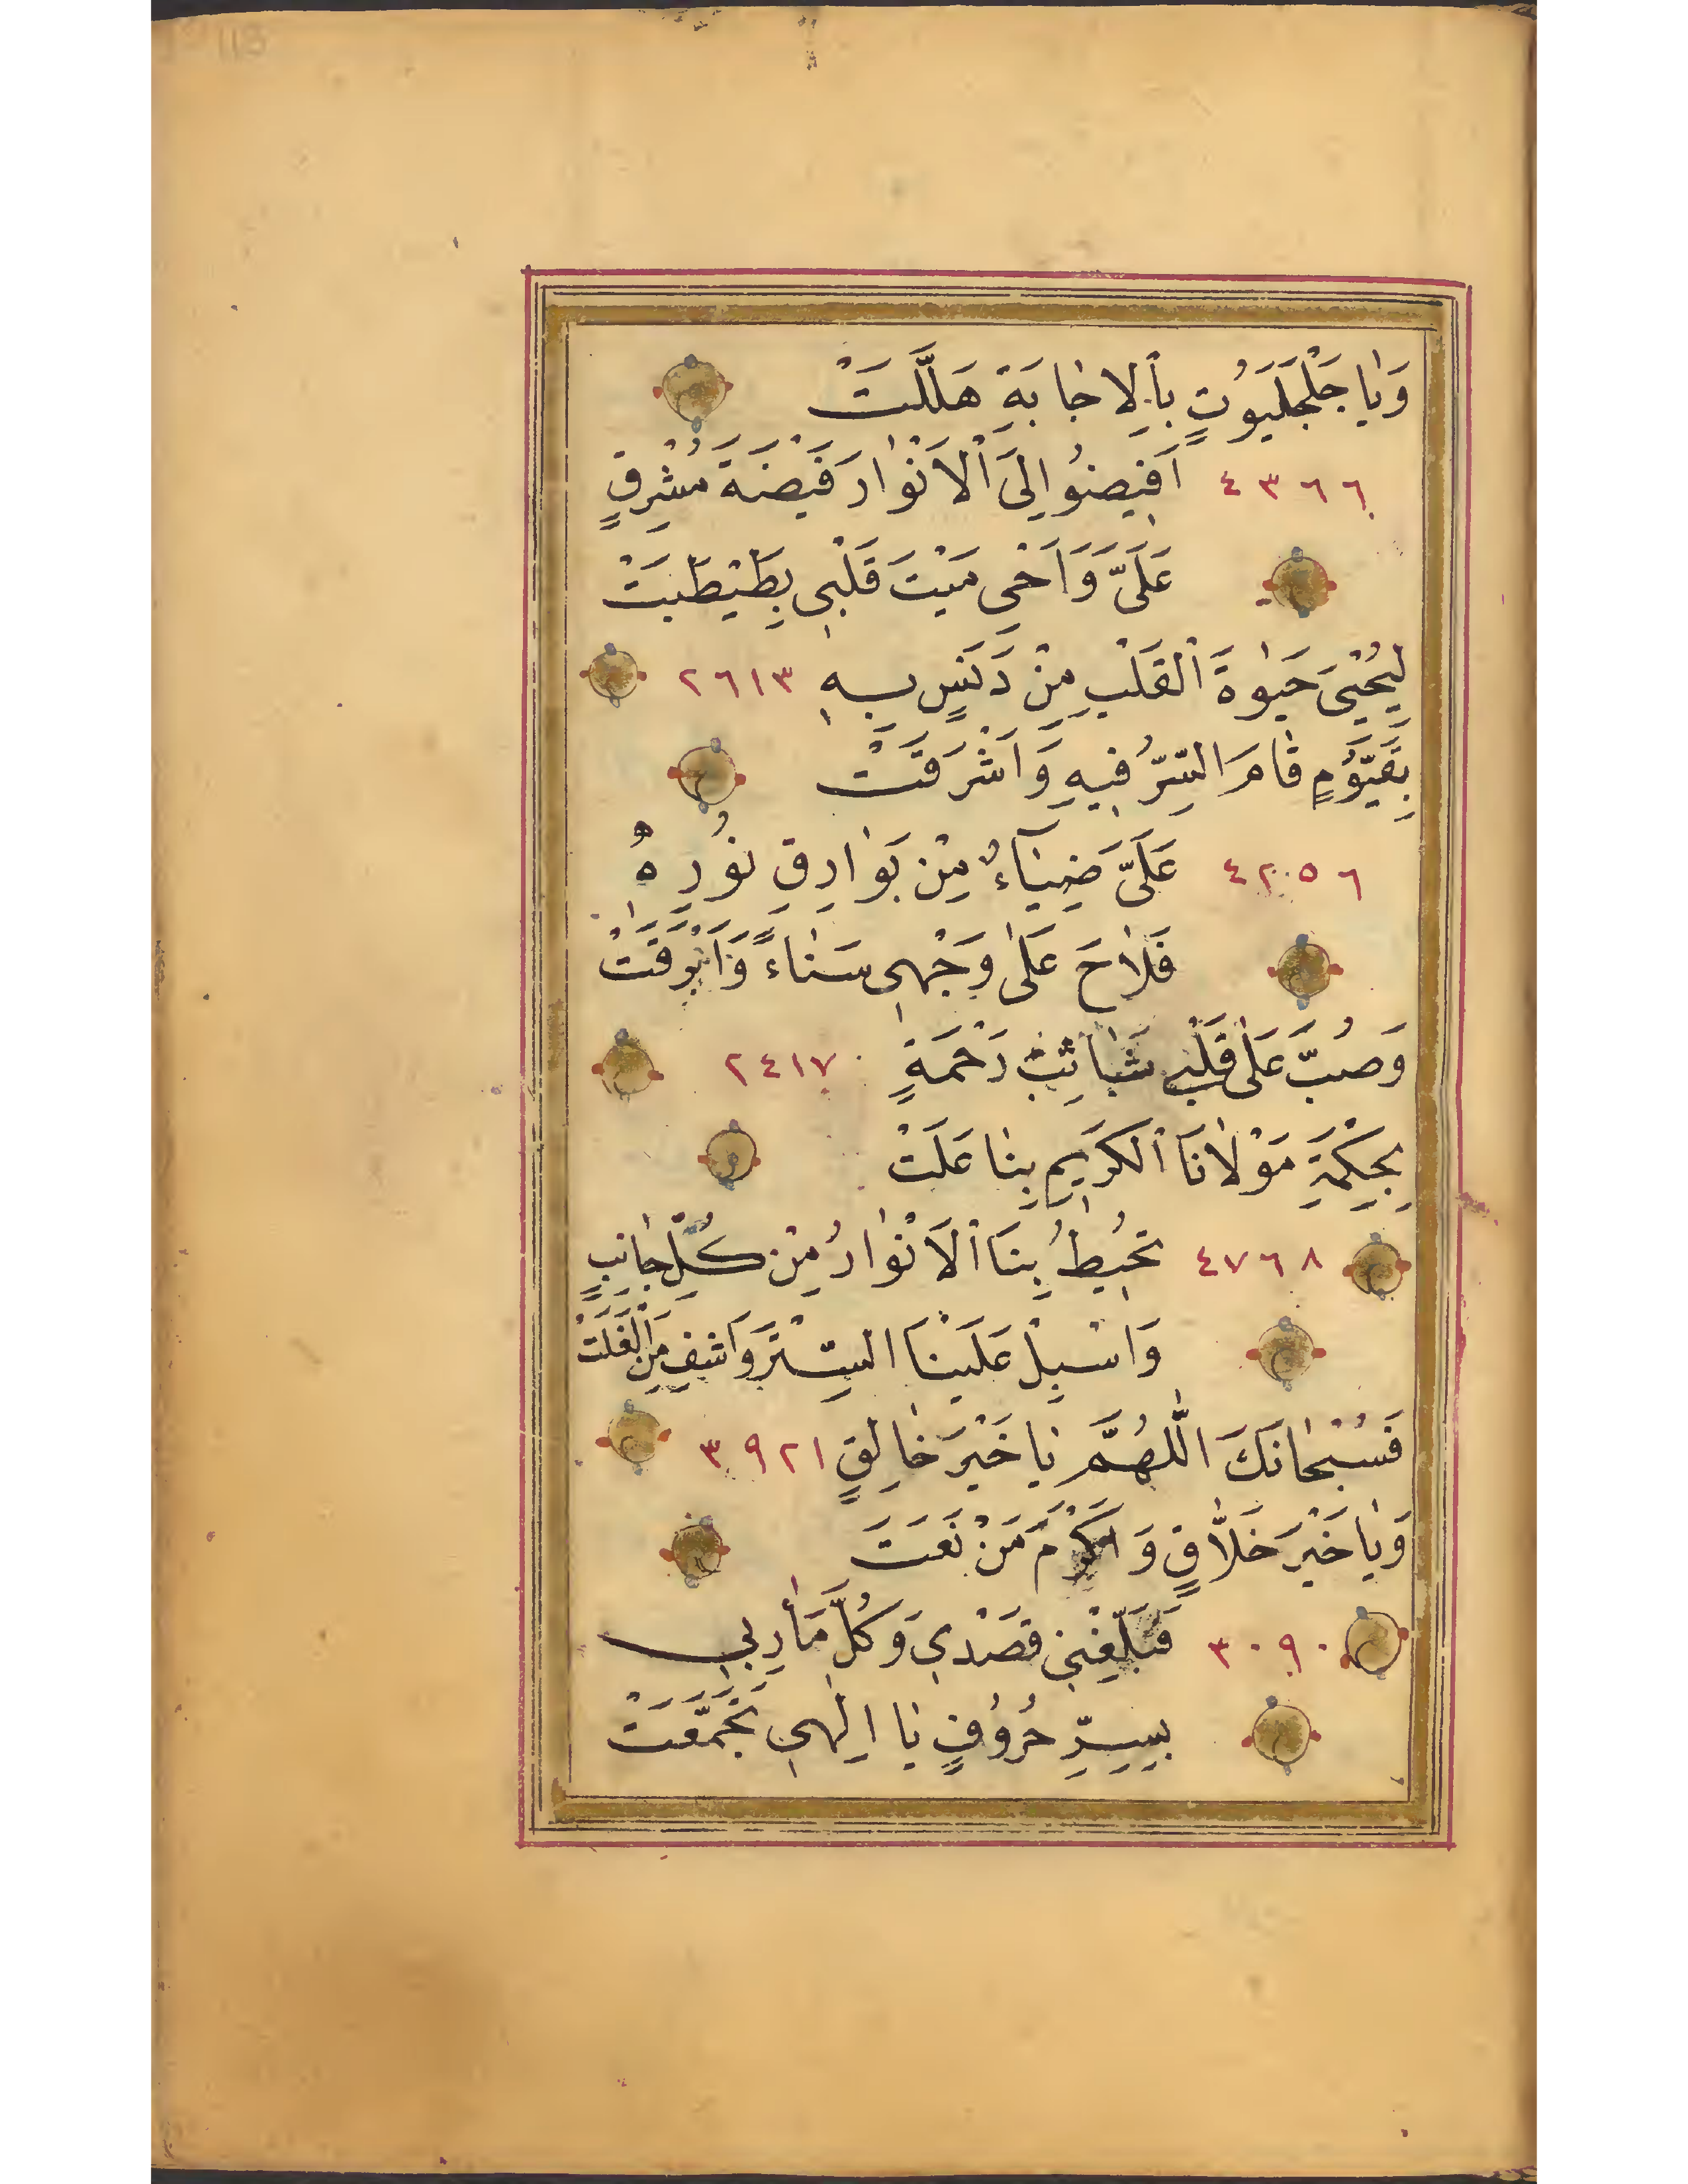 113
وَيٰا جَلْجَلَيَوُتٍ بِاْلاِجٰابَةِ هَلَّلَتْ
٤٣٦٦ اَفيِضُوا اِلَىَ اْلاَنْوٰارَ فَيْضَةَ مُشْرِقٍ
عَلَىَّ وَاَحْىِ مَيْتَ قَلْبىِ بِطَيْطَيَتْ
لِيُحْيىَ حَيٰوةَ اْلقَلْبِ مِنْ دَنَسٍ بِهِ ٢٦١٣
بِقَيّوُمٍ قٰامَ السِّرُّ فيِهِ وَاَشْرَقَتْ
٤٢٥٦ عَلَىَّ ضِيَآءٌ مِنْ بَوٰارِقِ نوُرِهِ
فَلاٰحَ عَلىٰ وَجْهىِ سَنٰاءً وَاَبْرَقَتْ
وَصُبَّ عَلىٰ قَلْبىِ شَبٰائِبُ رَحْمَةٍ ٢٤١٧
بِحِكْمَةِ مَوْلاٰنَا اْلكَرَيِمِ بِنٰا عَلَتْ
٤٧٦٨ تُحيِطُ بِنَا اْلاَنْوٰارُ مِنْ كُلِّ جٰانِبٍ
وَاَسْبِلْ عَلَيْنَا السِّتْرَ وَاشْفِ مِنَ اْلغَلَتْ
فَسُبْحٰانَكَ الّٰلهُمَّ يٰا خَيْرَ خٰالِقٍ ٣٩٢١
وَيٰا خَيْرَ خَلاّٰقٍ وَاَكْرَمَ مَنْ نَعَتَ
٣٠٩٠ فَبَلِّغْنىِ قَصْديِ وَكُلَّ مَأٰرِبىِ
بِسِرِّ حُروُفٍ يٰا اِلٰهىِ تَجَمَّعَتْ